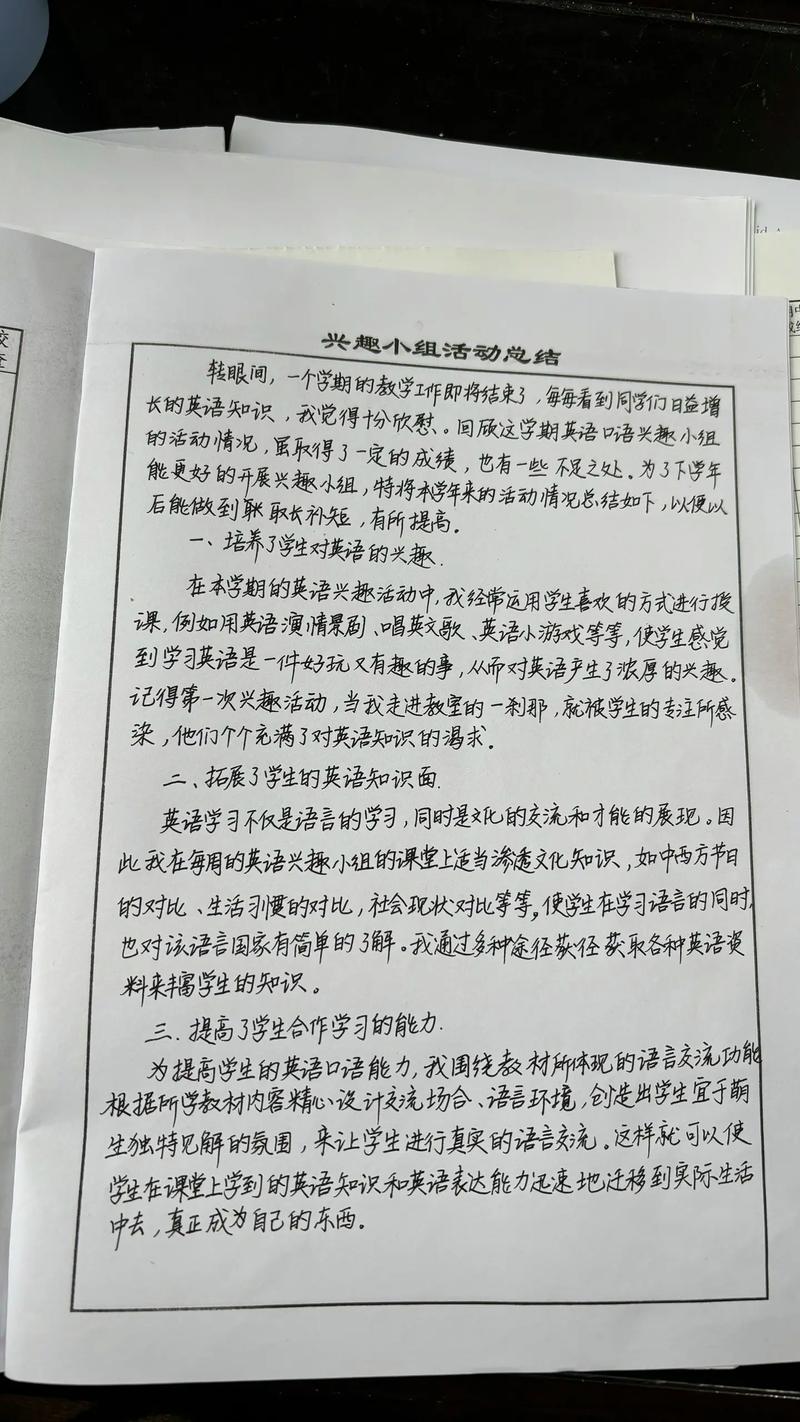 兴趣小组活动总结
转眼间，一个学期的教学工作即将结束了，每每看到同学们日益增
长的英语知识，我觉得十分欣慰。回顾这学期英语口语兴趣小组
的活动情况，虽取得了一定的成绩，也有一些不足之处。为了下学年
能更好的开展兴趣小组，特将本学年来的活动情况总结如下，以便以
后能做到取长补短，有所提高。
一、培养了学生对英语的兴趣.
在本学期的英语兴趣活动中，我经常运用学生喜欢的方式进行授
课，例如用英语演情景剧、唱英文歌、英语小游戏等等，使学生感觉
到学习英语是一件好玩又有趣的事，从而对英语产生了浓厚的兴趣。
记得第一次兴趣活动，当我走进教室的一刹那，就被学生的专注所感
染，他们个个充满了对英语知识的渴求。
二、拓展了学生的英语知识面.
英语学习不仅是语言的学习，同时是文化的交流和才能的展现。因
此我在每周的英语兴趣小组的课堂上适当渗透文化知识，如中西方节日
的对比、生活习惯的对比，社会现状对比等等，使学生在学习语言的同时，
也对该语言国家有简单的了解。我通过多种途径获径获取各种英语资
料来丰富学生的知识。
三.提高了学生合作学习的能力.
为提高学生的英语口语能力，我围绕教材所体现的语言交流功能
根据所学教材内容精心设计交流场合、语言环境，创造出学生宜于萌
生独特见解的氛围，来让学生进行真实的语言交流。这样就可以使
学生在课堂上学到的英语知识和英语表达能力迅速地迁移到实际生活
中去，真正成为自己的东西。